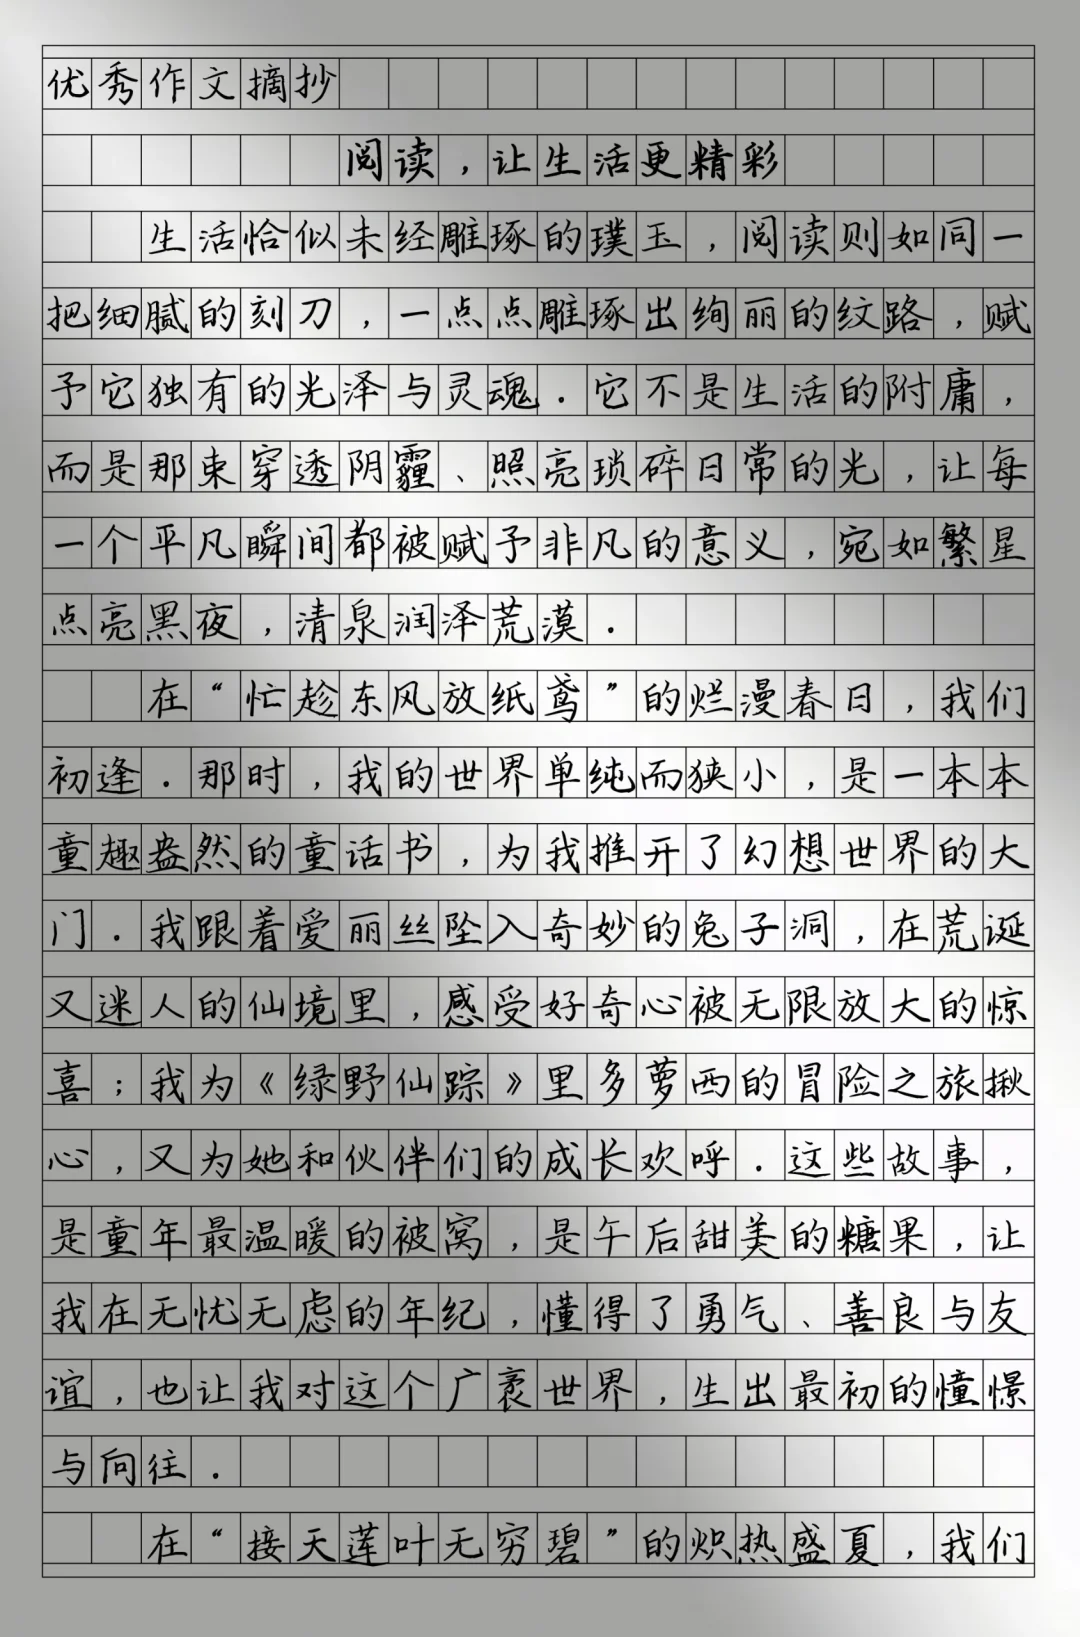 优秀作文摘抄
阅读，让生活更精彩
生活恰似未经雕琢的璞玉，阅读则如同一
把细腻的刻刀，一点点雕琢出绚丽的纹路，赋
予它独有的光泽与灵魂．它不是生活的附庸，
而是那束穿透阴霾、照亮琐碎日常的光，让每
一个平凡瞬间都被赋予非凡的意义，宛如繁星
点亮黑夜，清泉润泽荒漠．
在“忙趁东风放纸鸢”的烂漫春日，我们
初逢．那时，我的世界单纯而狭小，是一本本
童趣盎然的童话书，为我推开了幻想世界的大
门．我跟着爱丽丝坠入奇妙的兔子洞，在荒诞
又迷人的仙境里，感受好奇心被无限放大的惊
喜；我为《绿野仙踪》里多萝西的冒险之旅揪
心，又为她和伙伴们的成长欢呼．这些故事，
是童年最温暖的被窝，是午后甜美的糖果，让
我在无忧无虑的年纪，懂得了勇气、善良与友
谊，也让我对这个广袤世界，生出最初的憧憬
与向往．
在“接天莲叶无穷碧”的炽热盛夏，我们